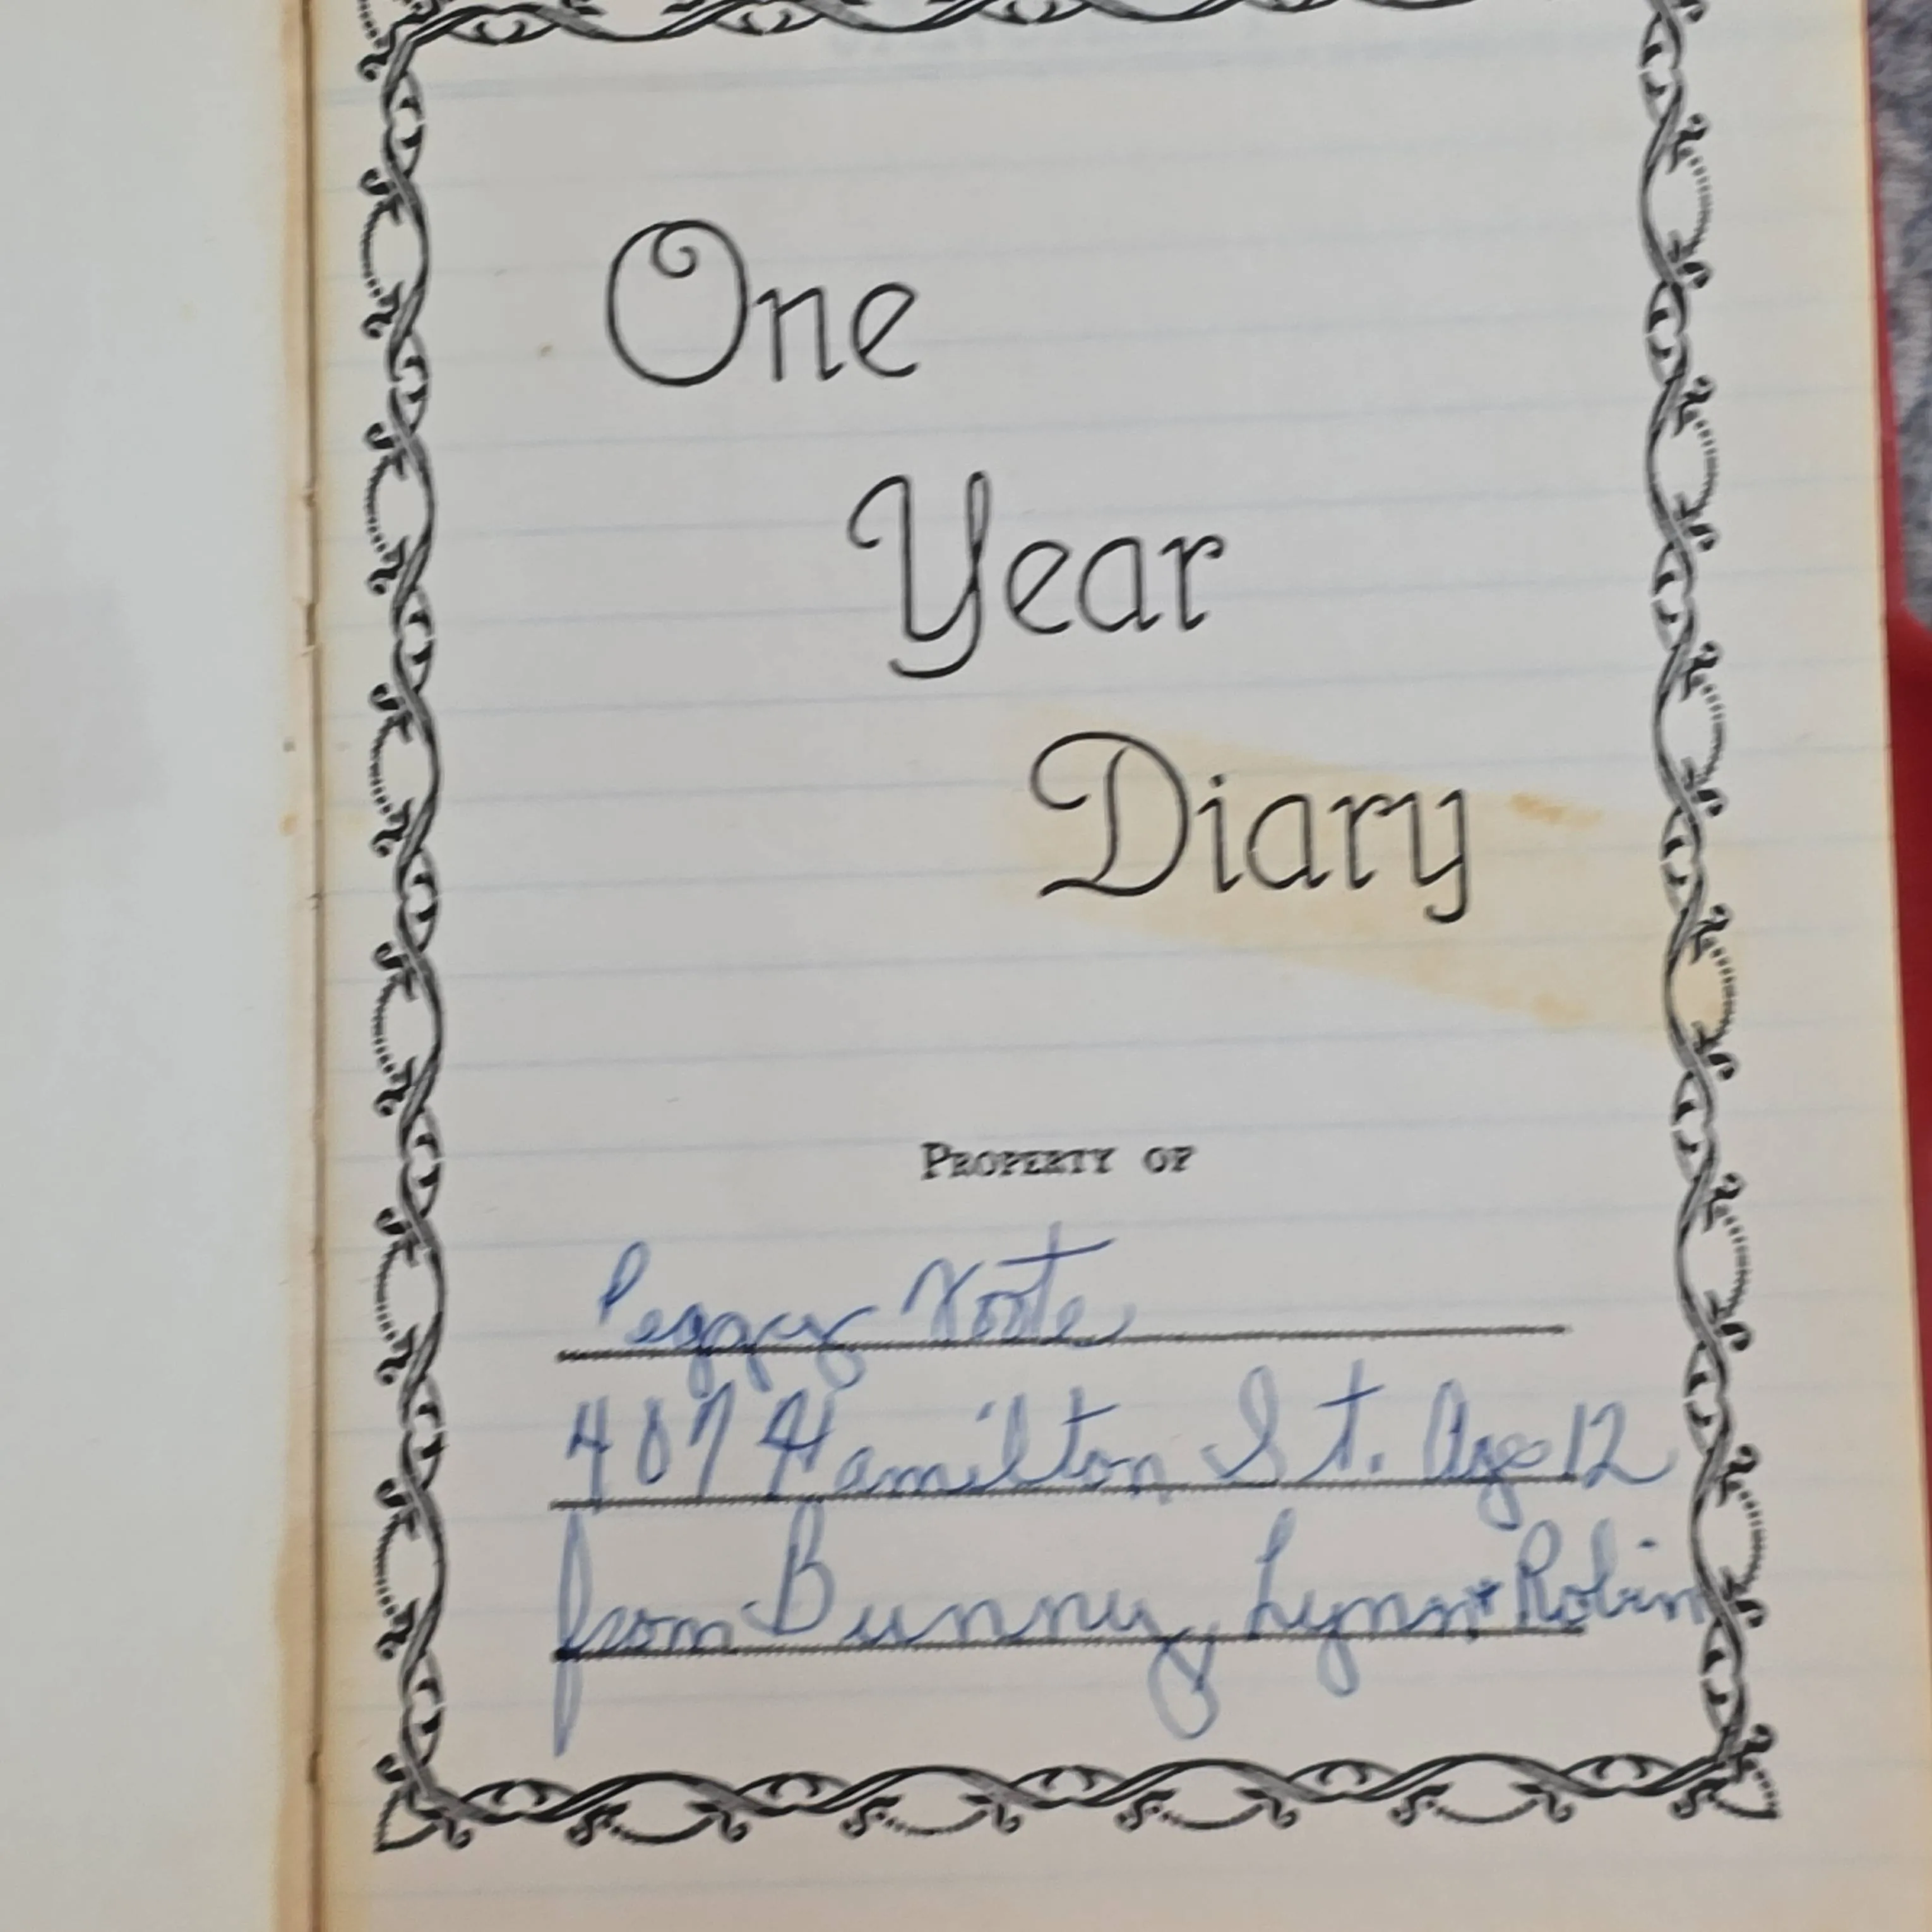 One
Year
Diary
PROPERTY OF
Peggy
407 Hamilton St. Age 12
from Bunny, Lynn + Robin